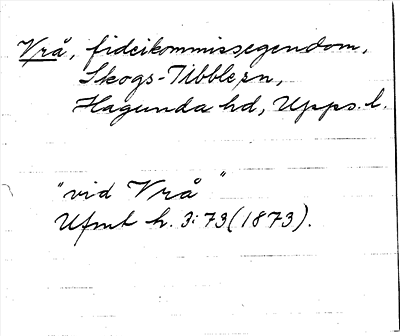 Vrå, fideikommissegendom,
Skogs-Tibble sn,
Hagunda hd, Upps. l.
"vid Vrå"
Ufmt h. 3:73 (1873).